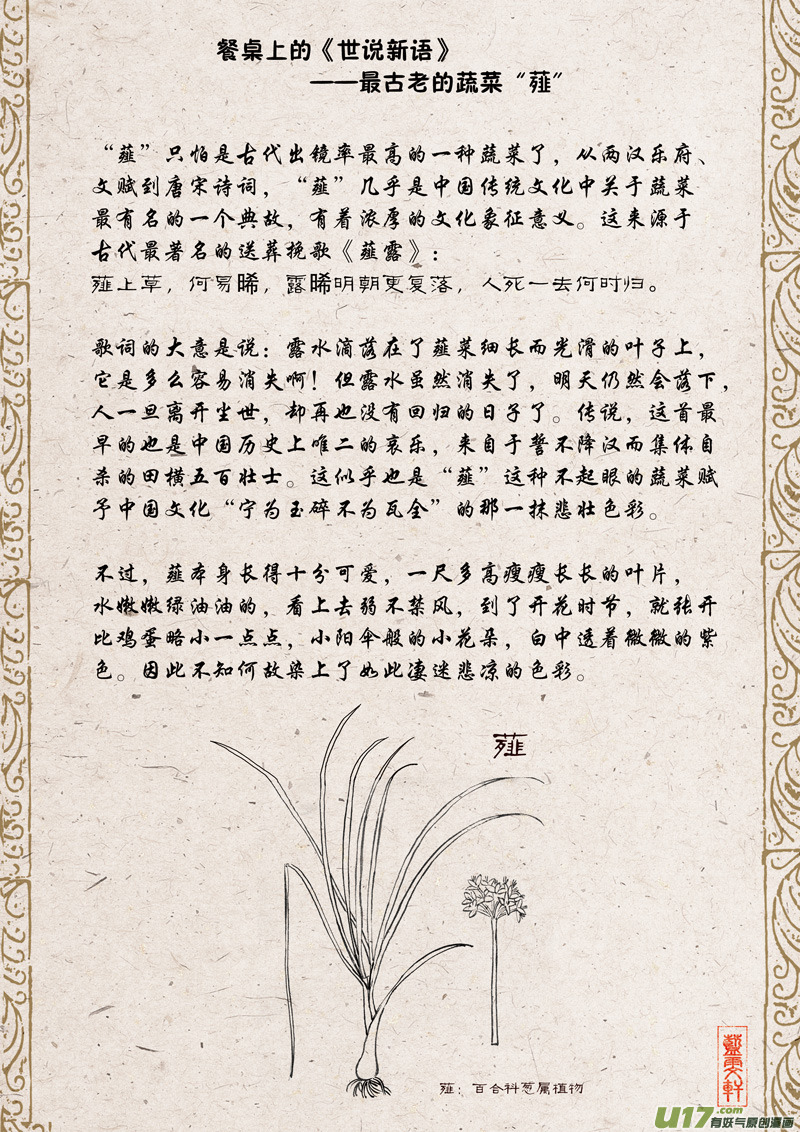 餐桌上的《世说新语》
——最古老的蔬菜“薤”
“薤”只怕是古代出镜率最高的一种蔬菜了，从两汉乐府、
文赋到唐宋诗词，“薤”几乎是中国传统文化中关于蔬菜
最有名的一个典故，有着浓厚的文化象征意义。这来源于
古代最著名的送葬挽歌《薤露》：
薤上草，何易晞，露晞明朝更复落，人死一去何时归。
歌词的大意是说：露水滴落在了薤菜细长而光滑的叶子上，
它是多么容易消失啊！但露水虽然消失了，明天仍然会落下，
人一旦离开尘世，却再也没有回归的日子了。传说，这首最
早的也是中国历史上唯二的哀乐，来自于誓不降汉而集体自
杀的田横五百壮士。这似乎也是“薤”这种不起眼的蔬菜赋
予中国文化“宁为玉碎不为瓦全”的那一抹悲壮色彩。
不过，薤本身长得十分可爱，一尺多高瘦瘦长长的叶片，
水嫩嫩绿油油的，看上去弱不禁风，到了开花时节，就张开
比鸡蛋略小一点点，小阳伞般的小花朵，白中透着微微的紫
色。因此不知何故染上了如此凄迷悲凉的色彩。
薤
薤：百合科葱属植物
U17.com
有妖气原创漫画